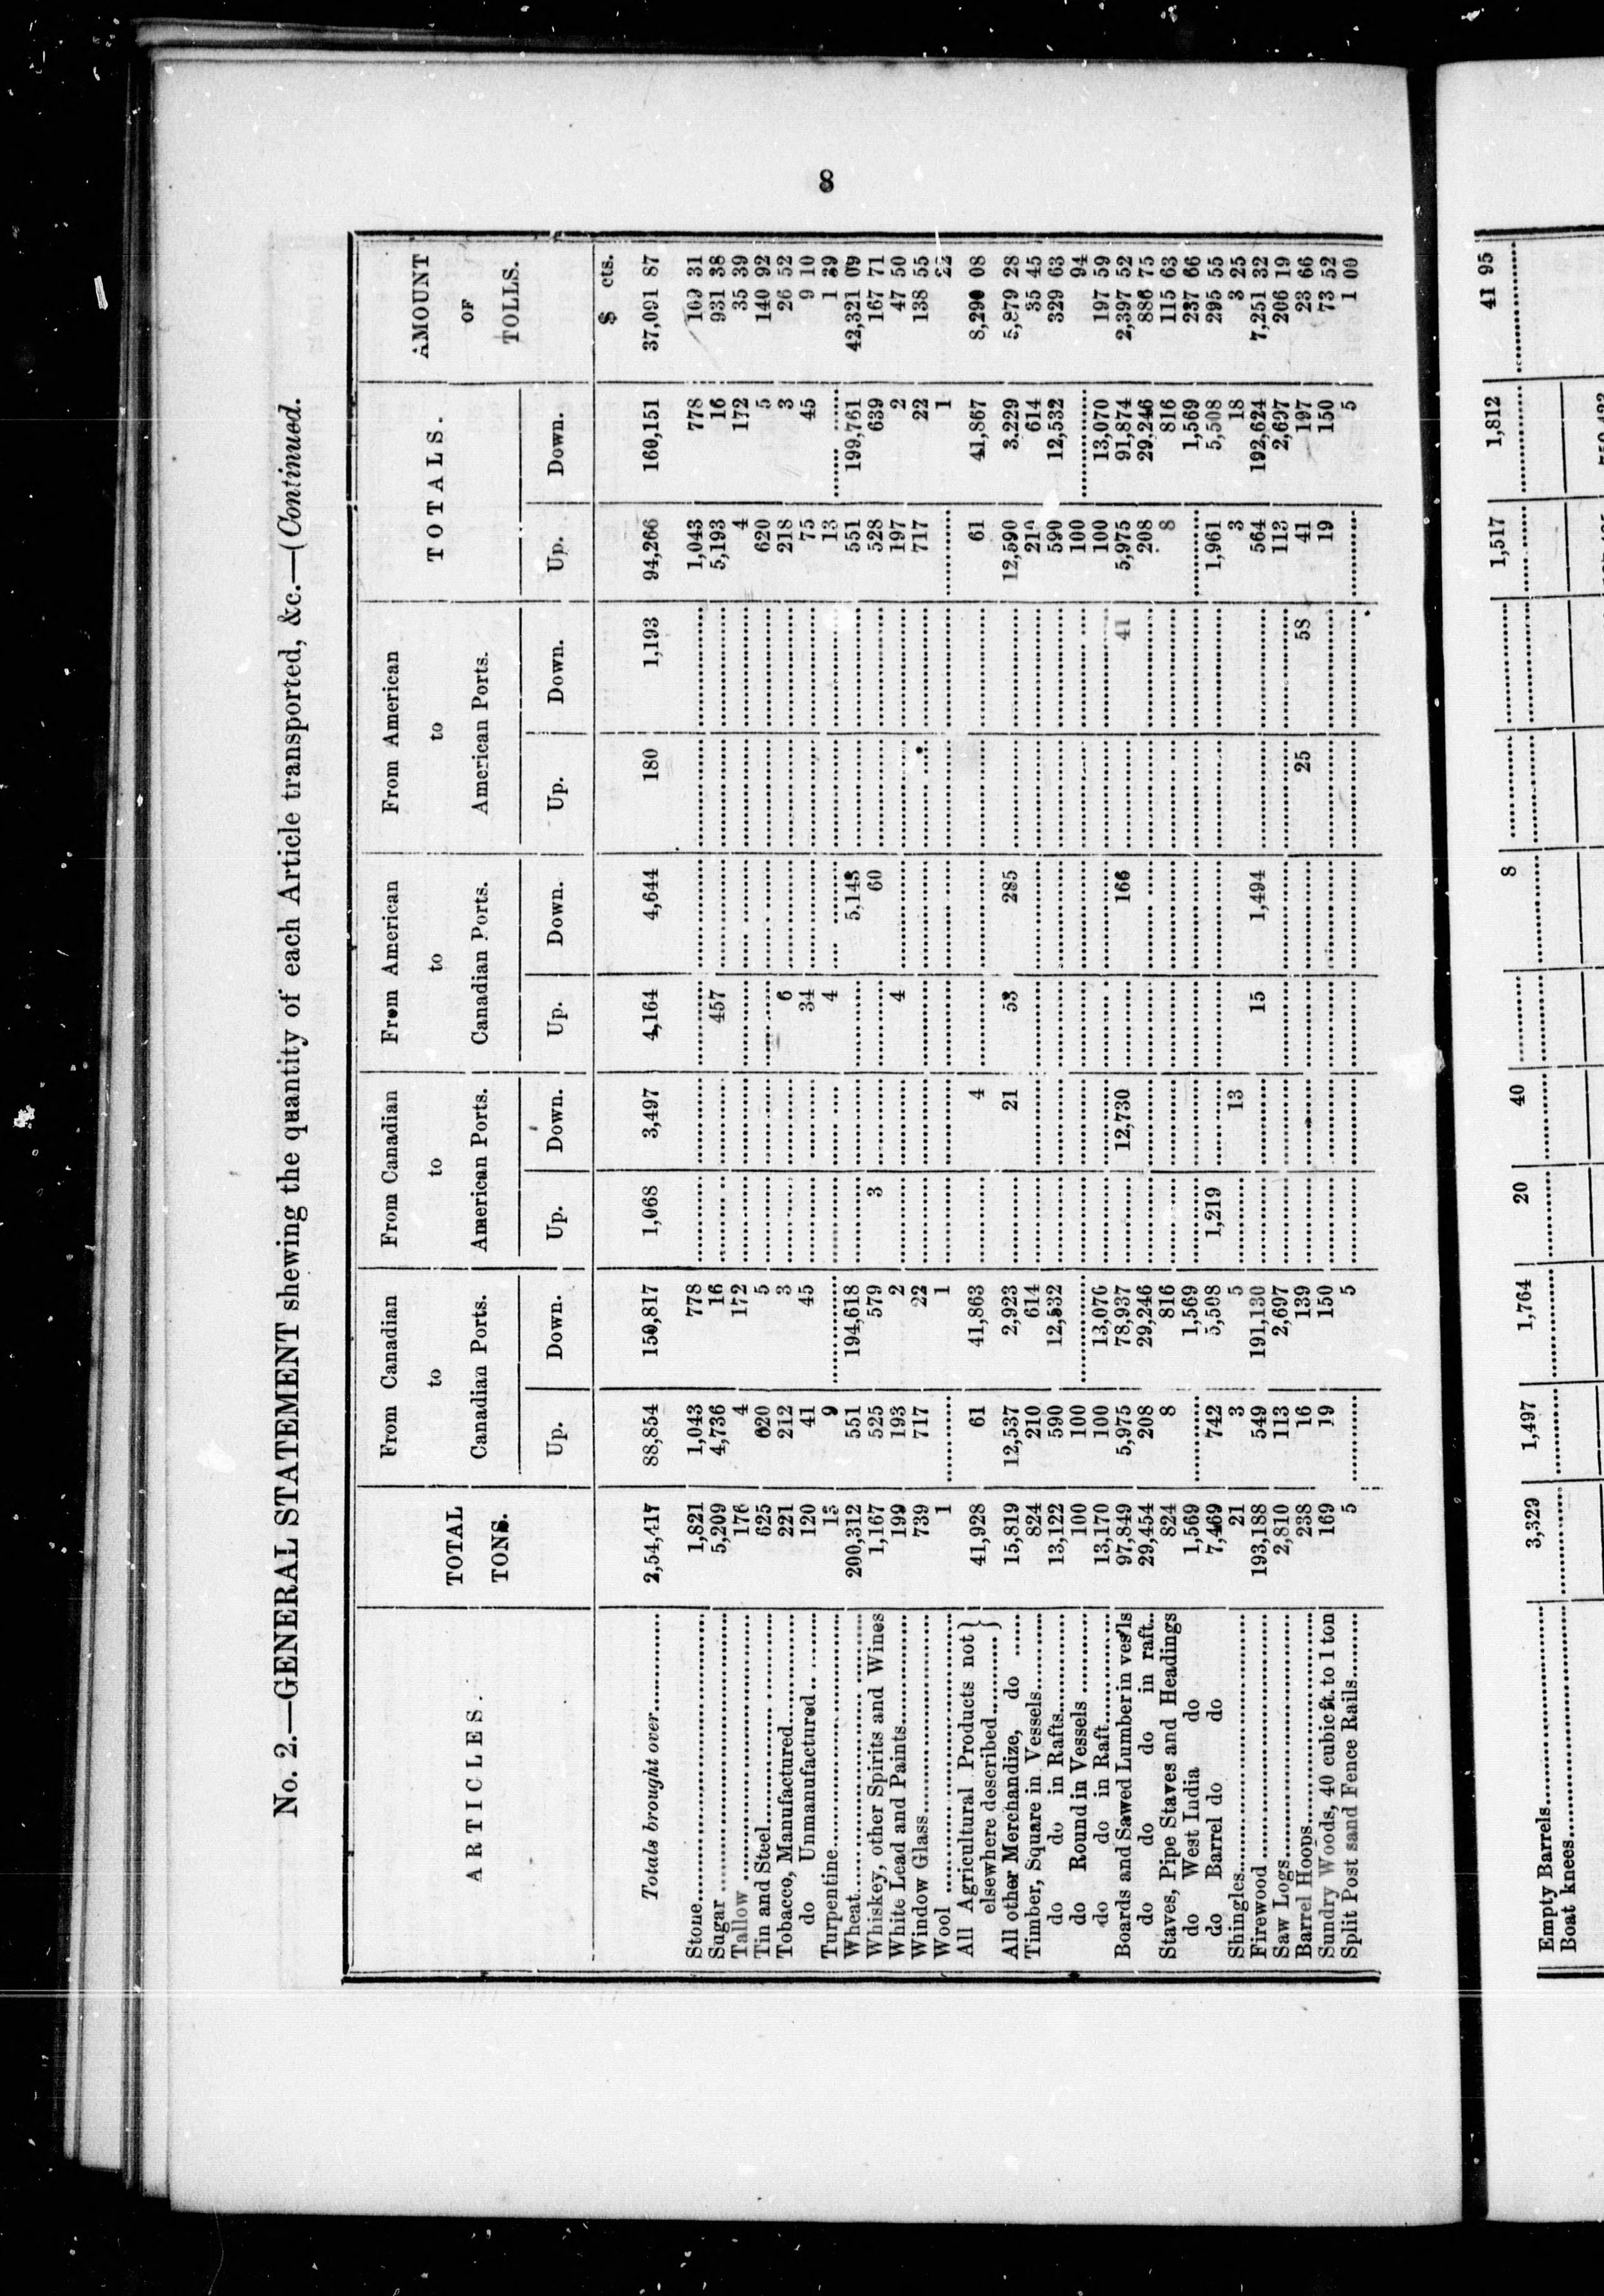 8
No. 2.—GENERAL STATEMENT shewing the quantity of each Article transported, &c.—(Continued.
ARTICLES. TOTAL TONS. From Canadian to Canadian Ports. From Canadian to American Ports. From American to Canadian Ports. From American to American Ports. TOTALS. AMOUNT OF TOLLS.
Up. Down. Up. Down. Up. Down. Up. Down. Up. Down.
$ cts.
Totals brought over 2,54,417 88,854 150,817 1,068 3,497 4,164 4,644 180 1,193 94,266 160,151 37,091 87
Stone 1,821 1,043 778 1,043 778 109 31
Sugar 5,209 4,736 16 457 5,193 16 931 38
Tallow 176 4 172 4 172 35 39
Tin and Steel 625 620 5 620 5 140 92
Tobacco, Manufactured 221 212 3 6 218 3 26 52
do Unmanufactured 120 41 45 34 75 45 9 10
Turpentine 13 9 4 13 1 39
Wheat 200,312 551 194,618 5,143 551 199,761 42,321 09
Whiskey, other Spirits and Wines 1,167 525 579 3 60 528 639 167 71
White Lead and Paints 199 193 2 4 197 2 47 50
Window Glass 739 717 22 717 22 138 55
Wool 1 1 1 22
All Agricultural Products not
elsewhere described 41,928 61 41,863 4 61 41,867 8,290 08
All other Merchandize, do 15,819 12,537 2,923 21 53 285 12,590 3,229 5,879 28
Timber, Square in Vessels 824 210 614 210 614 35 45
do do in Rafts 13,122 590 12,532 590 12,532 329 63
do Round in Vessels 100 100 100 94
do do in Raft 13,170 100 13,070 100 13,070 197 59
Boards and Sawed Lumber in ves'ls 97,849 5,975 78,937 12,730 166 41 5,975 91,874 2,397 52
do do do in raft 29,454 208 29,246 208 29,246 886 75
Staves, Pipe Staves and Headings 824 8 816 8 816 115 63
do West India do 1,569 1,569 1,569 237 66
do Barrel do do 7,469 742 5,508 1,219 1,961 5,508 295 55
Shingles 21 3 5 13 3 18 3 25
Firewood 193,188 549 191,130 15 1,494 564 192,624 7,251 32
Saw Logs 2,810 113 2,697 113 2,697 206 19
Barrel Hoops 238 16 139 25 58 41 197 23 66
Sundry Woods, 40 cubic ft. to 1 ton 169 19 150 19 150 73 52
Split Posts and Fence Rails 5 5 5 1 00
Empty Barrels 3,329 1,497 1,764 20 40 8 1,517 1,812 41 95
Boat knees